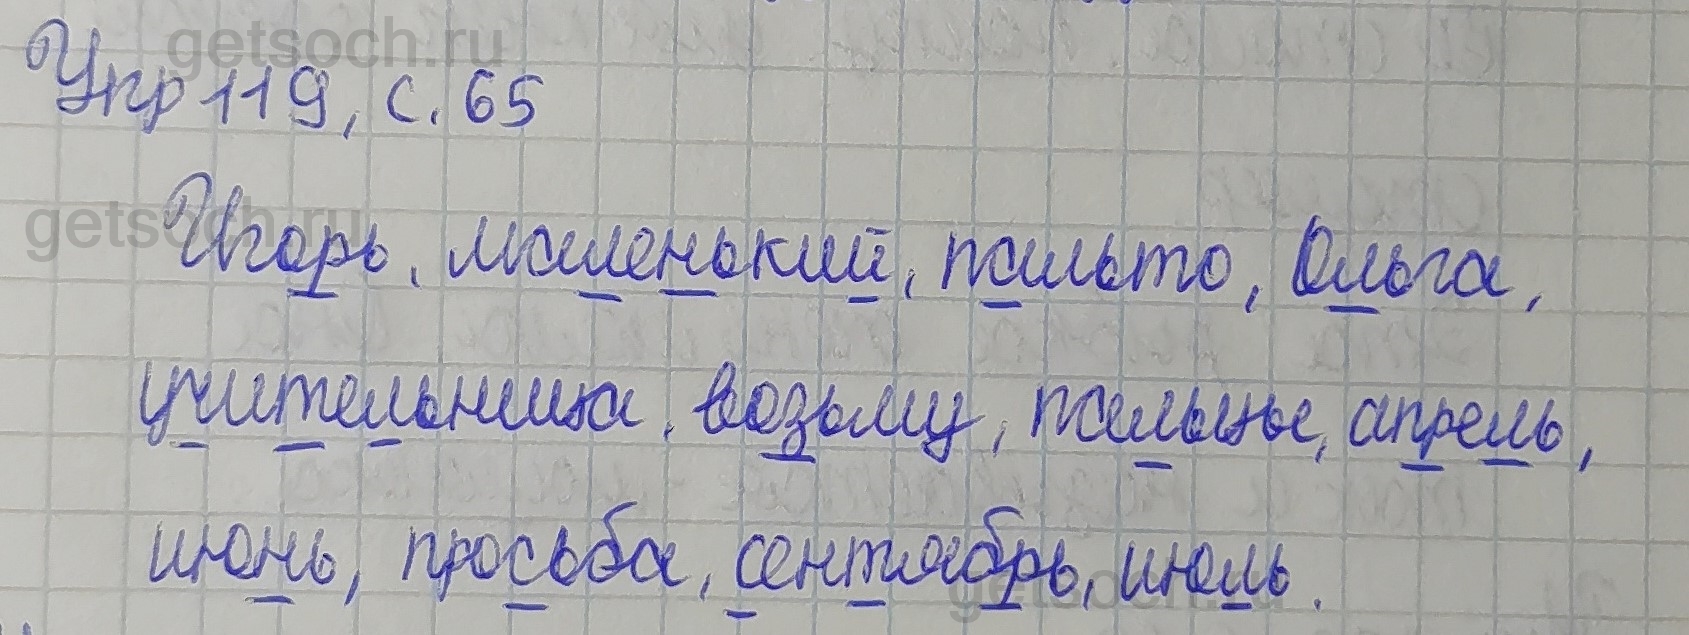 getsoch.ru
Упр 119, с. 65
getsoch.ru
Игорь, маленький, пальто, Ольга,
учительница, возьму, пальцы, апрель,
июнь, просьба, сентябрь, июль.
getsoch.ru